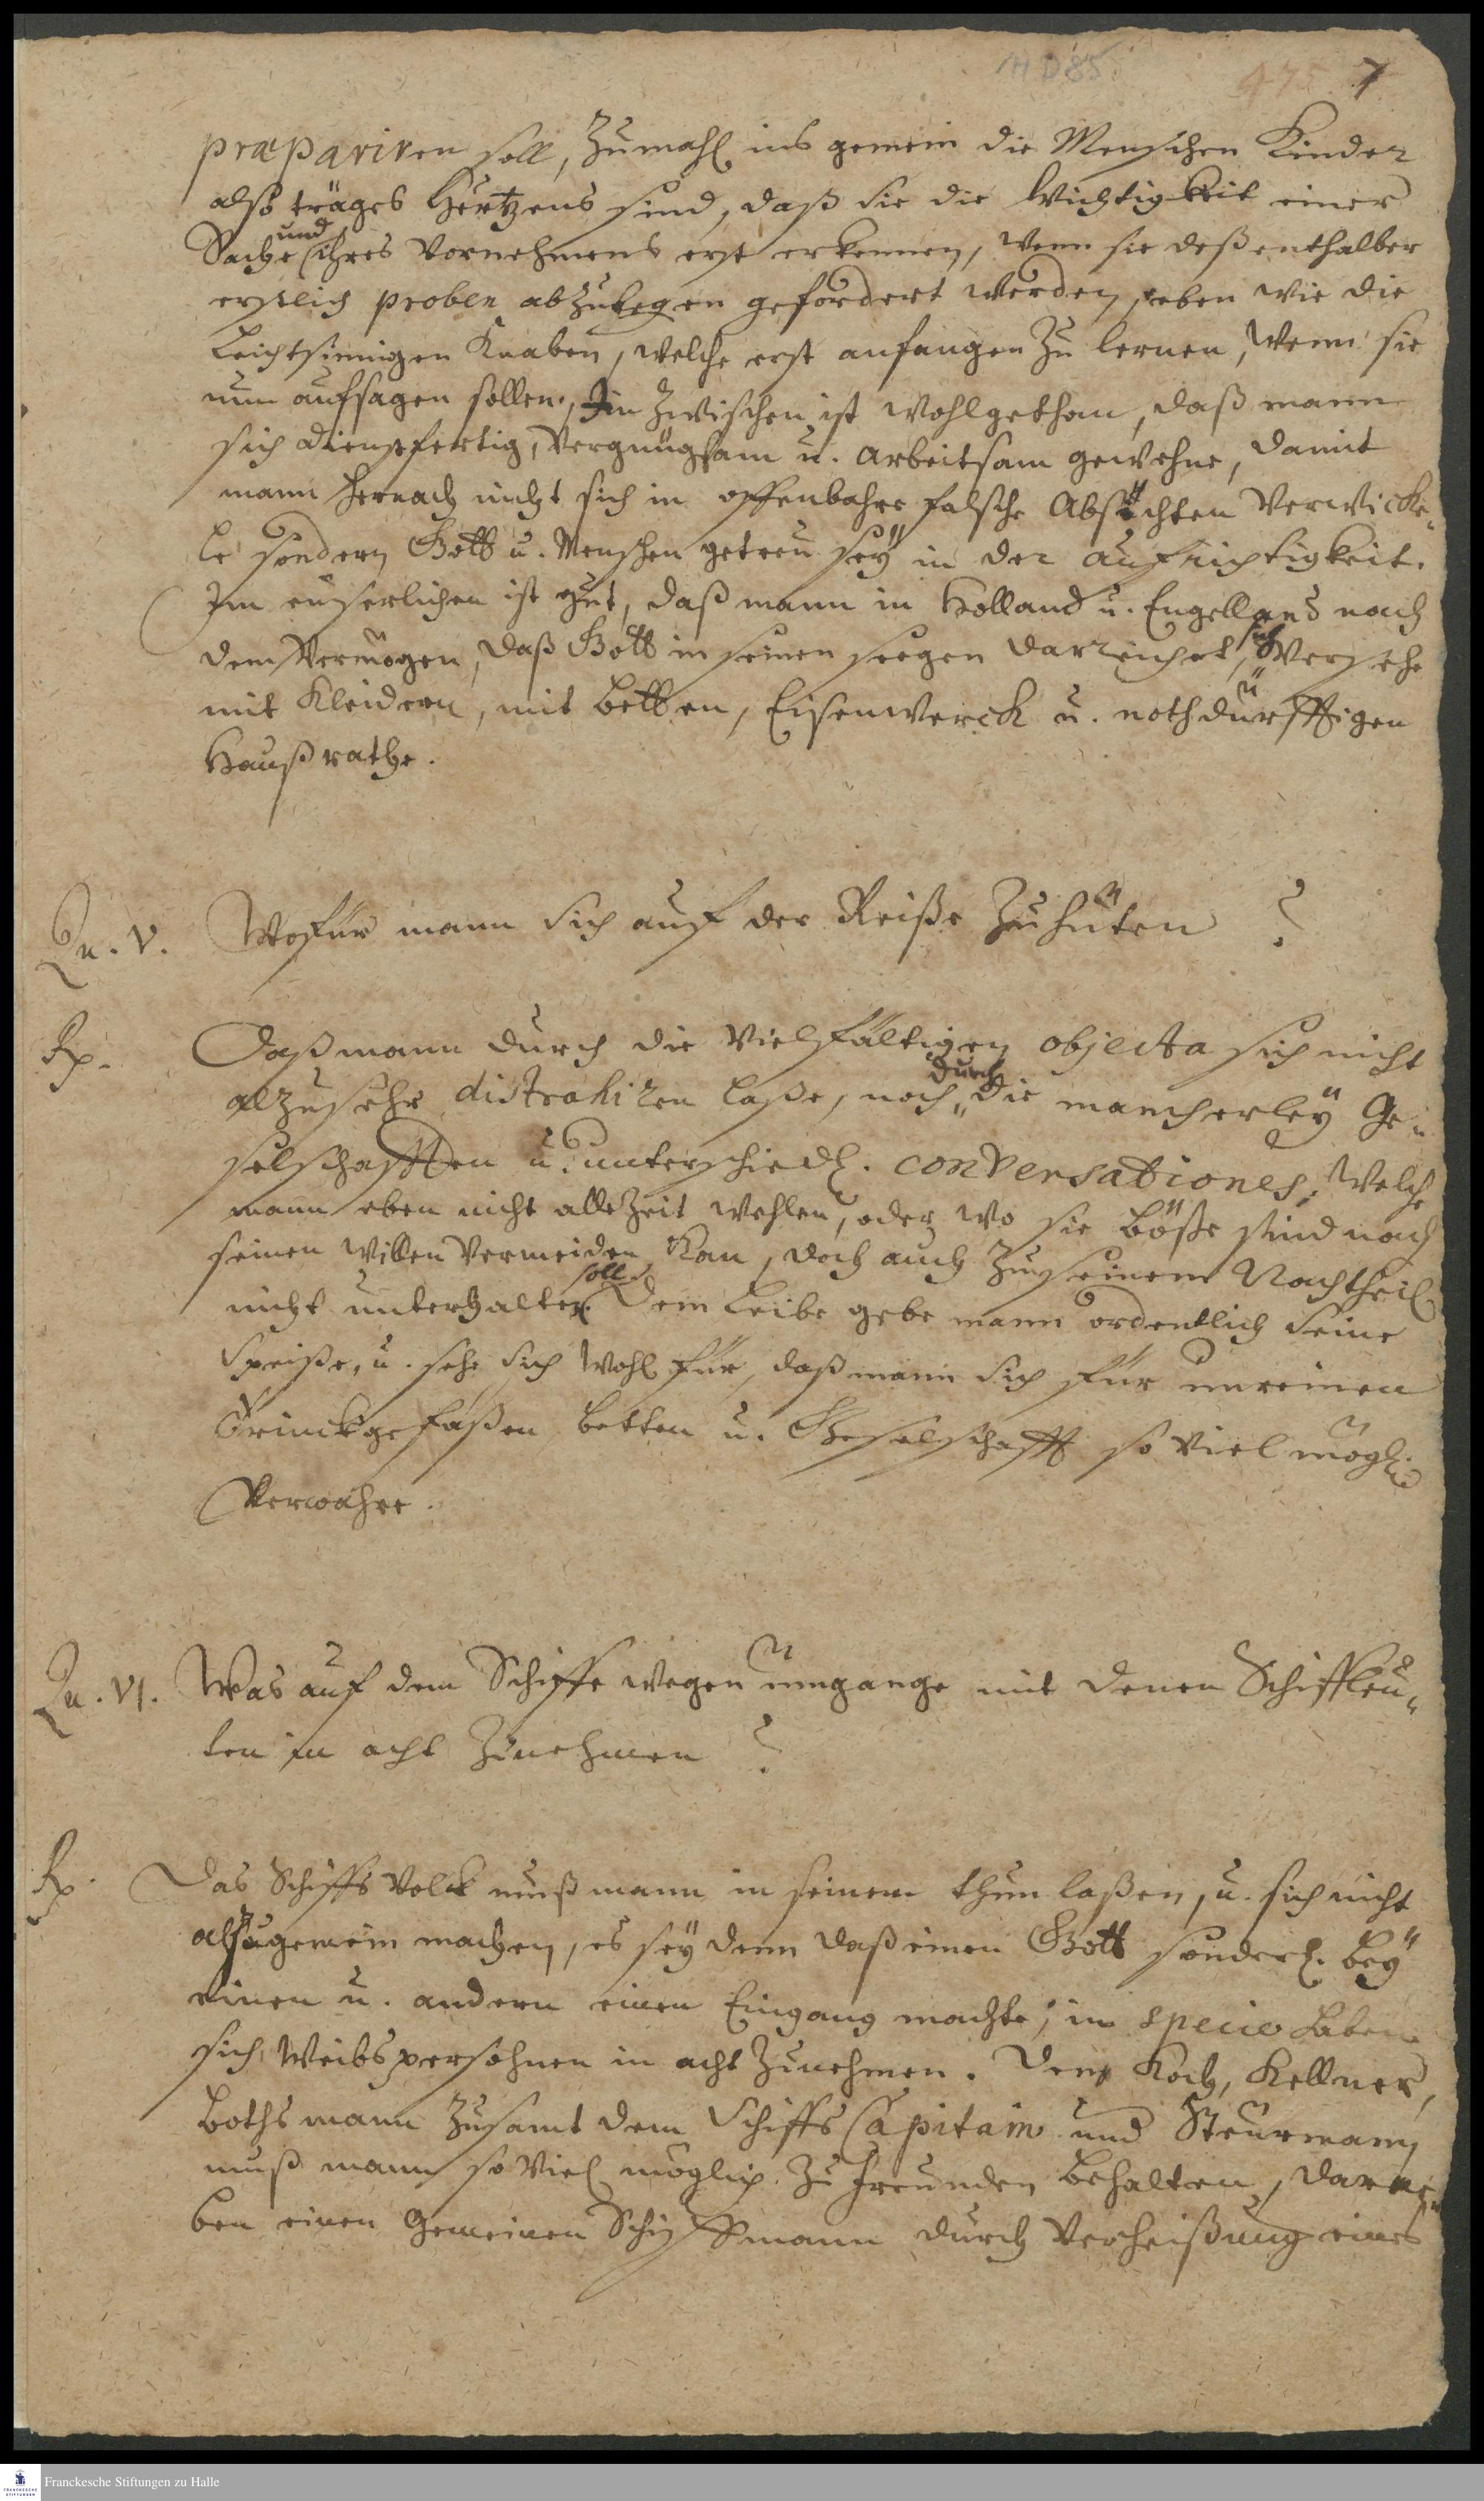 HD85
475 7
præpariren soll, Zumahl ins gemein die Menschen Kinder
also träges Hertzens sind, daß sie die Wichtigkeit einer
Sache und ihres Vornehmens erst erkennen, wenn sie deßenthalber
erstlich proben abzulegen gefordert werden, eben wie die
Leichtsinnigen Knaben, welche erst anfangen zu lernen, wenn sie
nun aufsagen sollen. In zwischen ist wohlgethan, daß mann
sich dienstfertig, Vergnügsam u. Arbeitsam gewehne, damit
mann hernach nicht sich in offenbahre falsche Absichten Verwicke„
le sondern Gott u. Menschen getreu sey in der aufrichtigkeit.
Im euserlichen ist gut, daß mann in Holland u. Engelland nach
dem Vermögen, daß Gott in seinen seegen darreichet, sich Versehe
mit Kleidern, mit betten, Eisenwerck u. nothdürfftigen
Haußrathe.
Qu. V. Wofür mann sich auf der Reiße Zu hüten ?
Rp. Daß mann durch die Vielfältigen objecta sich nicht
alzusehr distrahiren laße, noch durch die mancherley Ge„
selschafften u. unterschiedl. conversationes, Welche
mann eben nicht alle Zeit wehlen, oder wo sie böße sind nach
seinen willen Vermeiden kan, doch auch zu seinem Nachtheil
nicht unterhalten soll. Dem Leibe gebe mann ordentlich seine
Speiße, u. sehe sich wohl für, daß mann sich für unreinen
Trinckgefäßen betten u. Geselschafft so viel mögl.
Verwahre.
Qu. VI. Was auf dem Schiffe wegen umgange mit denen Schiffleu„
ten in acht Zunehmen ?
Rp. Das Schiffs Volck muß mann in seinem thun laßen, u. sich nicht
alzugemein machen, es sey denn daß einen Gott sonderl. bey
einen u. andern einen Eingang machte, in specie haben
sich Weibspersohnen in acht Zunehmen. Den Koch, Kellner,
Bothsmann Zusamt dem Schiffs Capitain und Steurmann
muß mann so Viel möglich zu Freunden behalten, darne„
ben einen Gemeinen Schiffmann durch Verheißung eines
Franckesche Stiftungen zu Halle